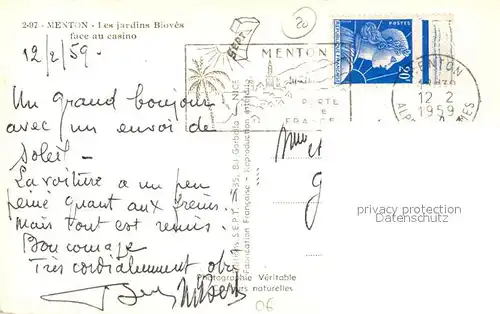 2-97 - MENTON - Les jardins Biovès
face au casino
12/2/59-
20
SEPT
MENTON
PERTE
DE
FRANCE
POSTES
20F
MENTON
12 2
1959
Un grand bonjour
avec un envoi de
soleil -
La voiture a un peu
peiné quant aux freins.
Mais tout est remis.
Bon courage
Très cordialement
Photographie Véritable
couleurs naturelles
Editions S.E.P.T. NICE
Fabrication Française - Reproduction interdite
privacy protection
Datenschutz
06